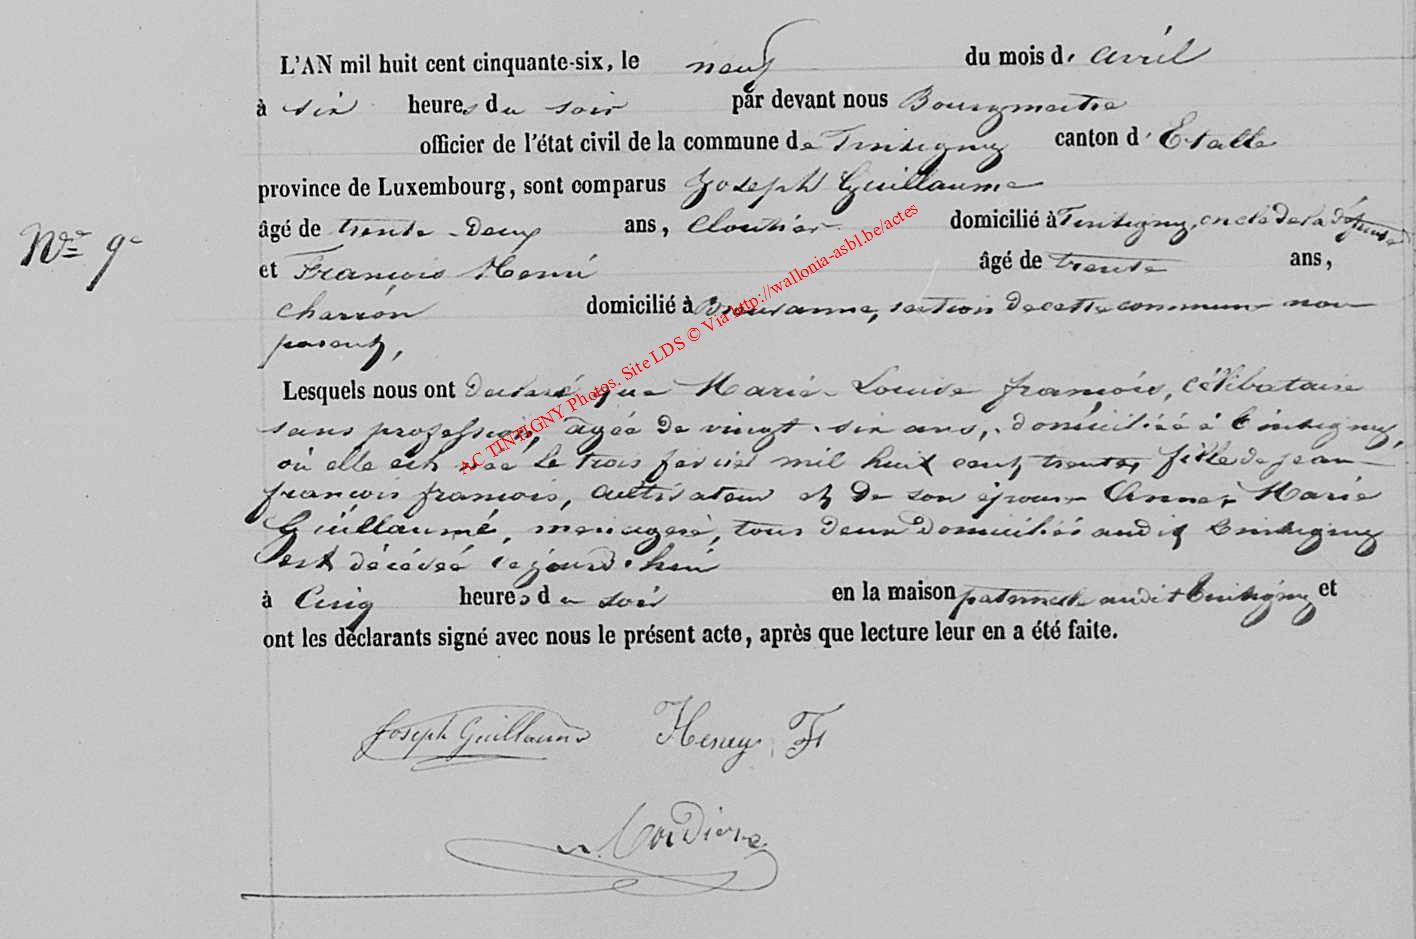 L'AN mil huit cent cinquante-six, le neuf du mois d' avril
à six heures du soir par devant nous Bourgmestre
officier de l'état civil de la commune de Tintigny canton d' Etalle
province de Luxembourg, sont comparus Joseph Guillaume
âgé de trente-deux ans, Cloutier domicilié à Tintigny, oncle de la défunte
et François Henri âgé de trente ans,
charron domicilié à Breuvanne, section de cette commune non
parent,
Lesquels nous ont declaré que Marie-Louise françois, célibataire
sans profession, agée de vingt-six ans, domiciliée à Tintigny,
où elle est née le trois février mil huit cent trente, fille de jean-
françois françois, cultivateur et de son épouse Anne-Marie
Guillaume, menagere, tous deux domiciliés audit Tintigny
est décédée cejourd'hui
à Cinq heures du soir en la maison paternelle audit Tintigny et
ont les déclarants signé avec nous le présent acte, après que lecture leur en a été faite.
Nro 9e
Joseph Guillaume Henry F
AC TINTIGNY Photos. Site LDS © Via http://wallonia-asbl.be/actes